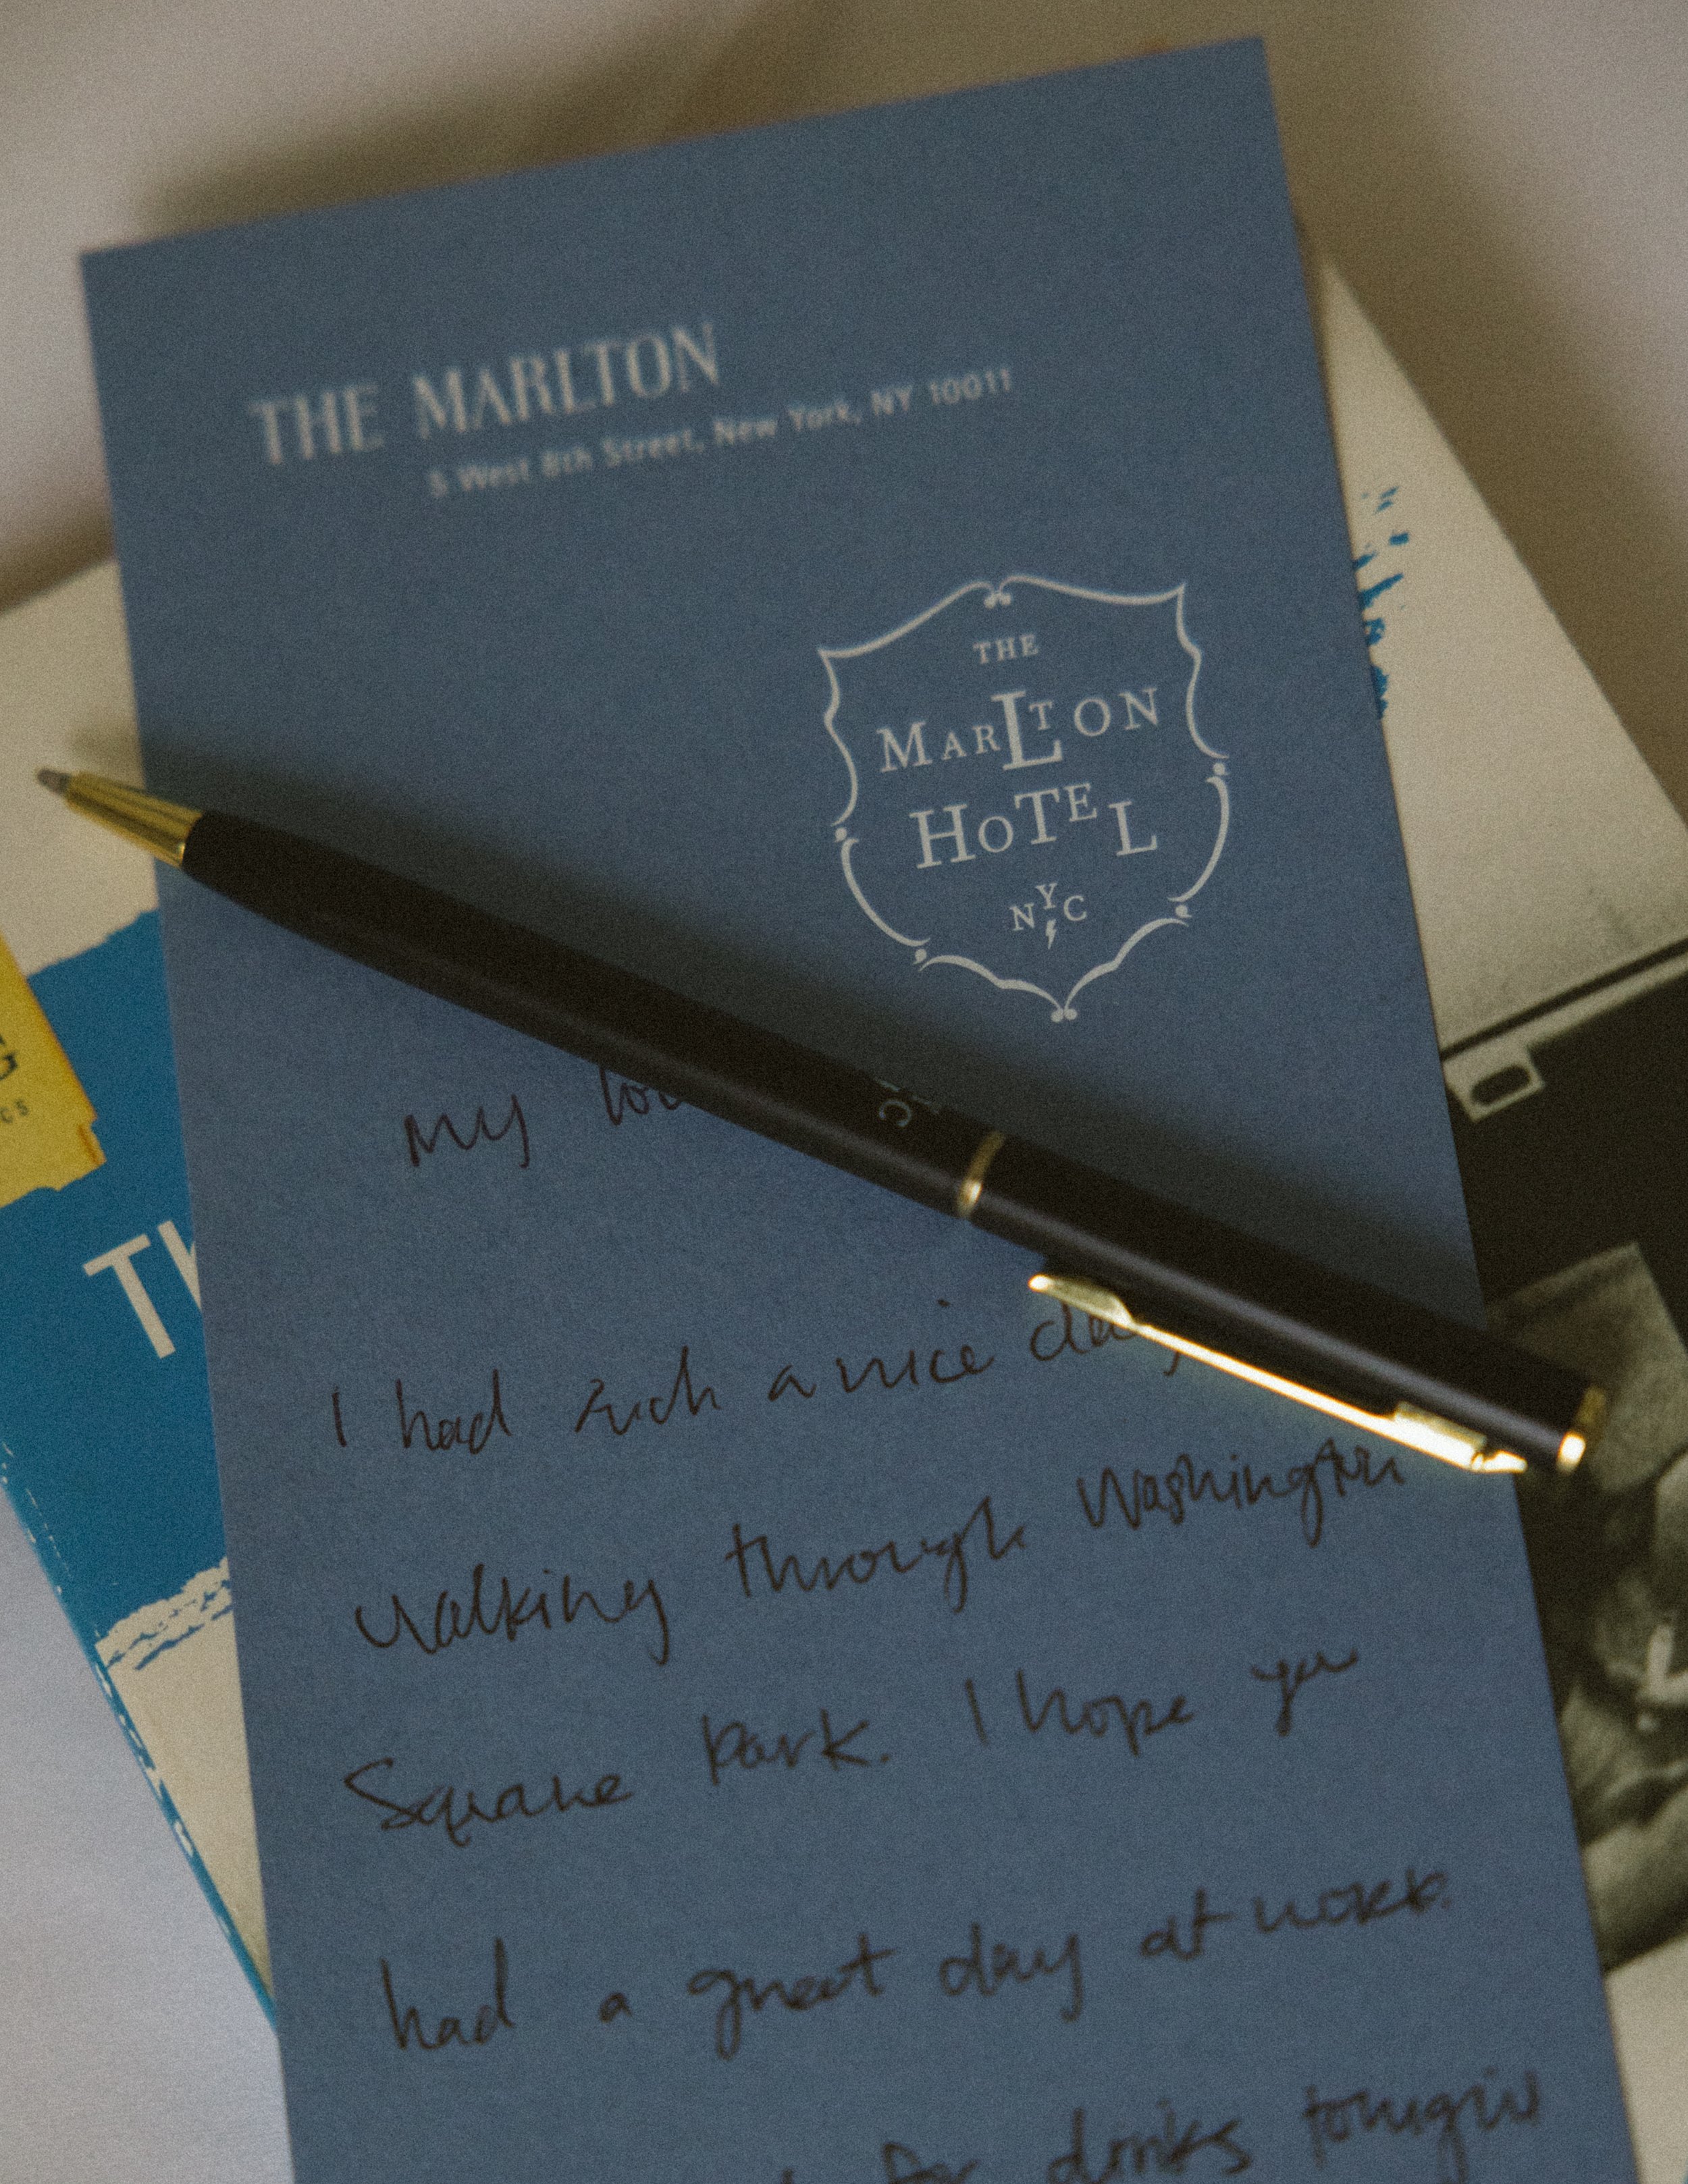 THE MARLTON
5 West 8th Street, New York, NY 10011
THE
MARLTON
HOTEL
NYC
my
I had such a nice day
walking through Washington
Square Park. I hope you
had a great day at work.
for drinks tonight